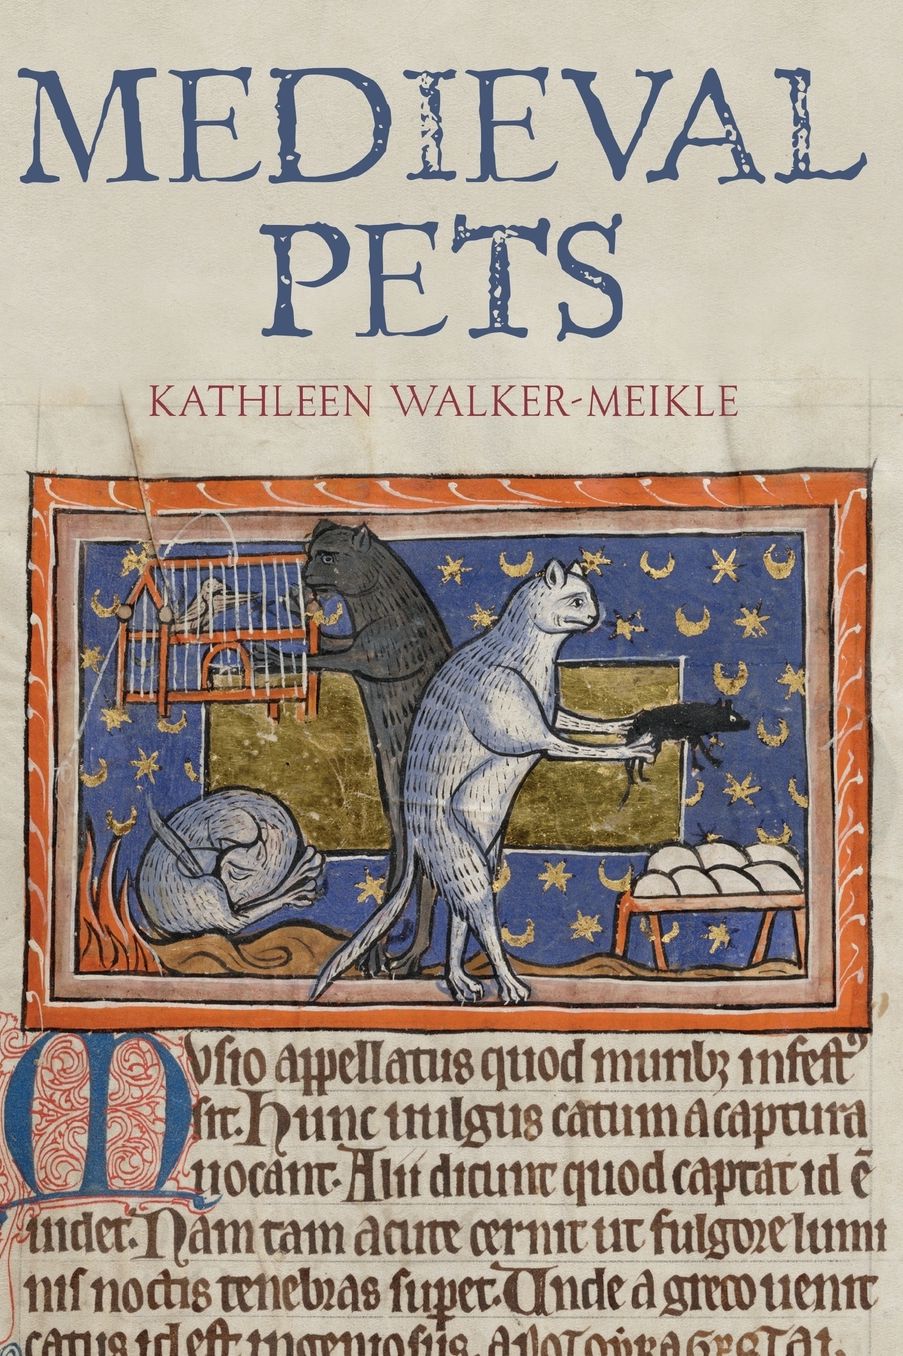 MEDIEVAL
PETS
KATHLEEN WALKER-MEIKLE
Musio appellatus quod muribꝫ infestꝰ
sit. Hunc uulgus catum a captura
uocant. Alii dicunt quod captat id ē
uidet. Nam tam acute cernit ut fulgore lumi
nis noctis tenebras superet. Unde a greco uenit
catus id est ingeniosus,